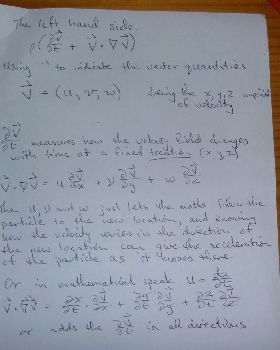 The left hand side.
ρ(∂V⃗/∂t + V⃗·∇V⃗)
Using → to indicate the vector quantities
V⃗ = (u, v, w) being the x, y, z
of velocity
∂V⃗/∂t measures how the velocity field changes
with time at a fixed location (x, y, z)
V⃗·∇V⃗ = u ∂V⃗/∂x + v ∂V⃗/∂y + w ∂V⃗/∂z
The u, v and w just lets the maths follow the
particle to the new location, and knowing
how the velocity varies in the direction of
the new location can give the acceleration
of the particle as it moves there.
Or in mathematical speak u = ∂x/∂t
V⃗·∇V⃗ = ∂x/∂t · ∂V⃗/∂x + ∂y/∂t · ∂V⃗/∂y + ∂z/∂t · ∂V⃗/∂z
or adds the ∂V⃗/∂t in all directions